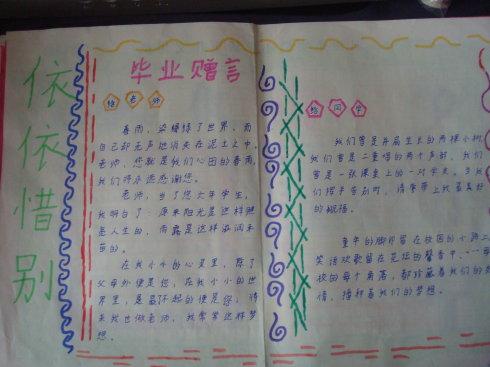 依依惜别
毕业赠言
给老师
春雨，染绿了世界，而
自己却无声地消失在泥土之中。
老师，您就是我们心田的春雨，
我们将永远感谢您。
老师，当了您六年学生，
我明白了：原来阳光是这样照
进人生的，雨露是这样滋润禾
苗的。
在我小小的心灵里，除了
父母外便是您，在我小小的世
界里，最了不起的便是您，将
来我也做老师，我常常这样梦
想。
给同学
我们曾是并肩生长的两棵小树，
我们曾是二重唱的两个声部，我们
曾是一张课桌上的一对学友。当我
们握手告别时，请带上我最美好
的祝福。
童年的脚印留在校园的小路上，
笑语欢歌留在花坛的馨香中，母
校的每个角落，都珍藏着我们的
情，播种着我们的梦想。